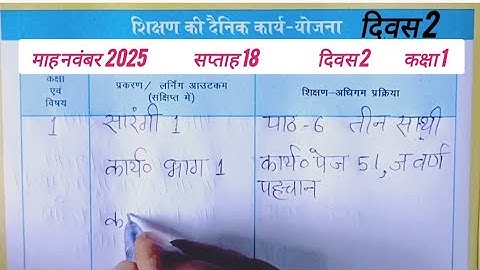 शिक्षण की दैनिक कार्य-योजना दिवस 2
माह नवंबर 2025 सप्ताह 18 दिवस 2 कक्षा 1
कक्षा एवं विषय
प्रकरण/ लर्निंग आउटकम (संक्षिप्त में)
शिक्षण-अधिगम प्रक्रिया
1 सारंगी 1 पाठ-6 तीन साथी
कार्य० भाग 1 कार्य० पेज 51, ज वर्ण
पहचान
क